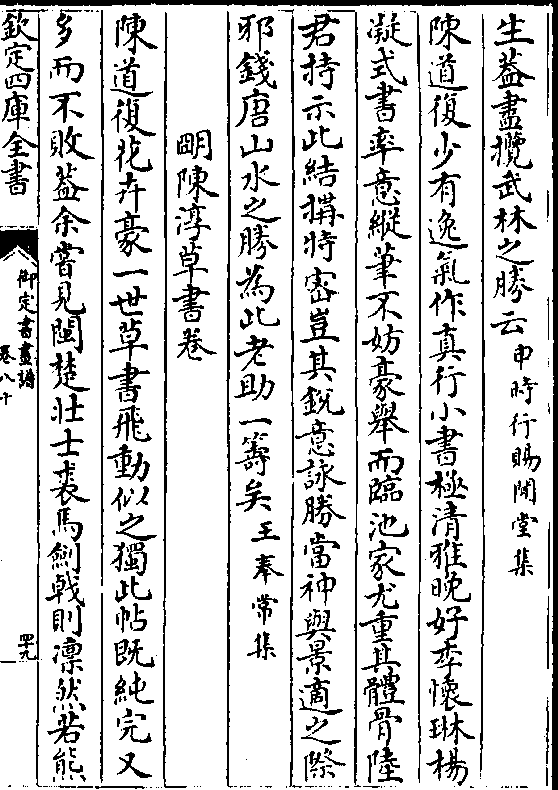 生葢盡攬武林之勝云申時行賜閒堂集
陳道復少有逸氣作真行小書極清雅晚好李懷琳楊
凝式書率意縱筆不妨豪舉而臨池家尤重其體骨陸
君持示此結搆特密豈其銳意詠勝當神與景適之際
邪錢唐山水之勝為此老助一籌矣王奉常集
明陳淳草書卷
陳道復花卉豪一世草書飛動似之獨此帖既純完又
多而不敗葢余嘗見閩楚壯士裘馬劍戟則凛然若熊
欽定四庫全書
御定書畫譜
卷八十
四十九